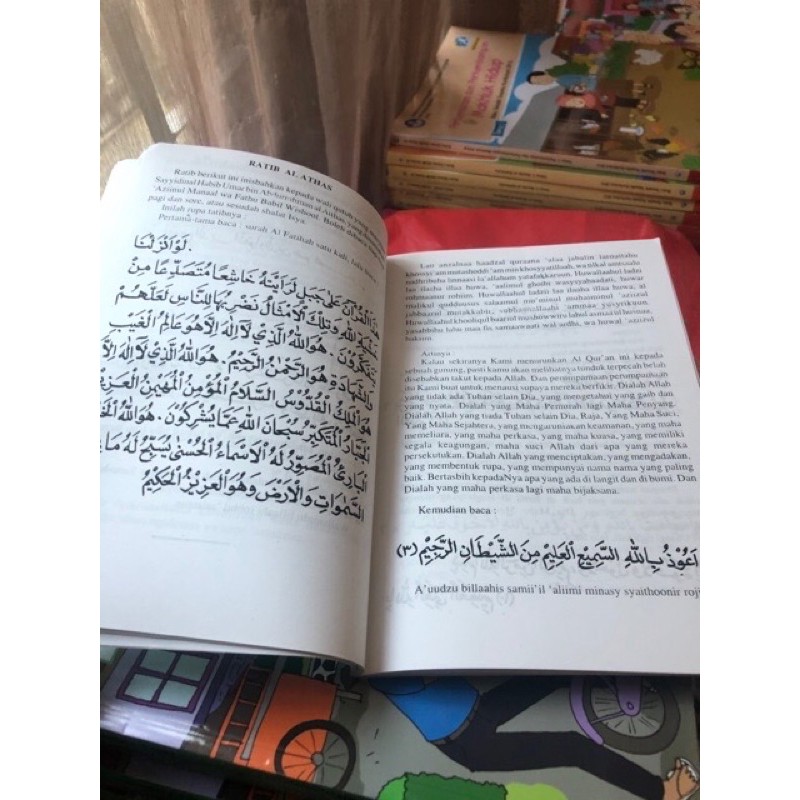 RATIB AL ATHAS
Ratib berikut ini inisbahkan kepada wali qutub yang
Sayyidinal Habib Umar bin
'Azimul Manaal wa Fathu Babil Boleh dibaca
pagi dan sore, atau sesudah shalat Isya.
Inilah rupa ratibnya :
Pertama-tama baca : surah Al Fatihah satu kali,
لَوْ اَنْزَلْنَا
الْقُرْآنَ عَلَى جَبَلٍ لَرَاَيْتَهُ خَاشِعًا مُتَصَدِّعًا مِنْ
اللهِ وَتِلْكَ الْاَمْثَالُ نَضْرِبُهَا لِلنَّاسِ لَعَلَّهُمْ
يَتَفَكَّرُوْنَ. هُوَ اللهُ الَّذِيْ لَا اِلٰهَ اِلَّا هُوَ عَالِمُ الْغَيْبِ
وَالشَّهَادَةِ هُوَ الرَّحْمٰنُ الرَّحِيْمُ. هُوَ اللهُ الَّذِيْ لَا اِلٰهَ اِلَّا
هُوَ الْمَلِكُ الْقُدُّوْسُ السَّلَامُ الْمُؤْمِنُ الْمُهَيْمِنُ الْعَزِيْزُ
الْجَبَّارُ الْمُتَكَبِّرُ سُبْحَانَ اللهِ عَمَّا يُشْرِكُوْنَ. هُوَ اللهُ
الْبَارِئُ الْمُصَوِّرُ لَهُ الْاَسْمَاءُ الْحُسْنٰى يُسَبِّحُ لَهُ مَا
السَّمٰوَاتِ وَالْاَرْضِ وَهُوَ الْعَزِيْزُ الْحَكِيْمُ
Lau anzalnaa haadzal quraana 'alaa jabalin laraaitahu
khosyi'am mutashoddi'am min khosyyatillaah, wa tilkal amtsaalu
nadhribuha linnaasi la'allahum yatafakkaruun. Huwallaahul ladzi
laa ilaaha illaa huwa, 'aalimul ghoibi wasysyahaadati, huwar
rohmaanur rohiim. Huwallaahul ladzii laa ilaaha illaa huwa, al
malikul qudduusus salaamul mu'minul muhaiminul 'aziizul
jabbaarul mutakabbir, subhaanallaahi 'ammaa yusyrikuun.
Huwallaahul khooliqul baariul mushowwiru lahul asmaa ul husnaa,
yusabbihu lahu maa fis, samaawaati wal ardhi, wa huwal 'aziizul
hakiim.
Artinya
Kalau sekiranya Kami menurunkan Al Qur'an ini kepada
sebuah gunung, pasti kamu akan melihatnya tunduk terpecah belah
disebabkan takut kepada Allah. Dan perumpamaan perumpamaan
itu Kami buat untuk manusia supaya mereka berfikir. Dialah Allah
yang tidak ada Tuhan selain Dia, yang mengetahui yang gaib dan
yang nyata. Dialah yang Maha Pemurah lagi Maha Penyang.
Dialah Allah yang tiada Tuhan selain Dia, Raja, Yang Maha Suci,
Yang Maha Sejahtera, yang mengaruniakan keamanan, yang maha
memeliara, yang maha perkasa, yang maha kuasa, yang memiliki
segala keagungan, maha suci Allah dari apa yang mereka
persekutukan. Dialah Allah yang menciptakan, yang mengadakan,
yang membentuk rupa, yang mempunyai nama nama yang paling
baik. Bertasbih kepadaNya apa yang ada di langit dan di bumi. Dan
Dialah yang maha perkasa lagi maha bijaksana.
Kemudian baca :
اَعُوْذُ بِاللهِ السَّمِيْعِ الْعَلِيْمِ مِنَ الشَّيْطَانِ الرَّجِيْمِ (٣)
A'uudzu billaahis samii'il 'aliimi minasy syaithoonir roji
Makhluk Hidup